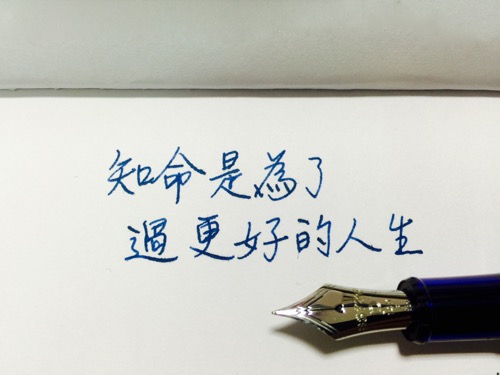 知命是為了
過更好的人生